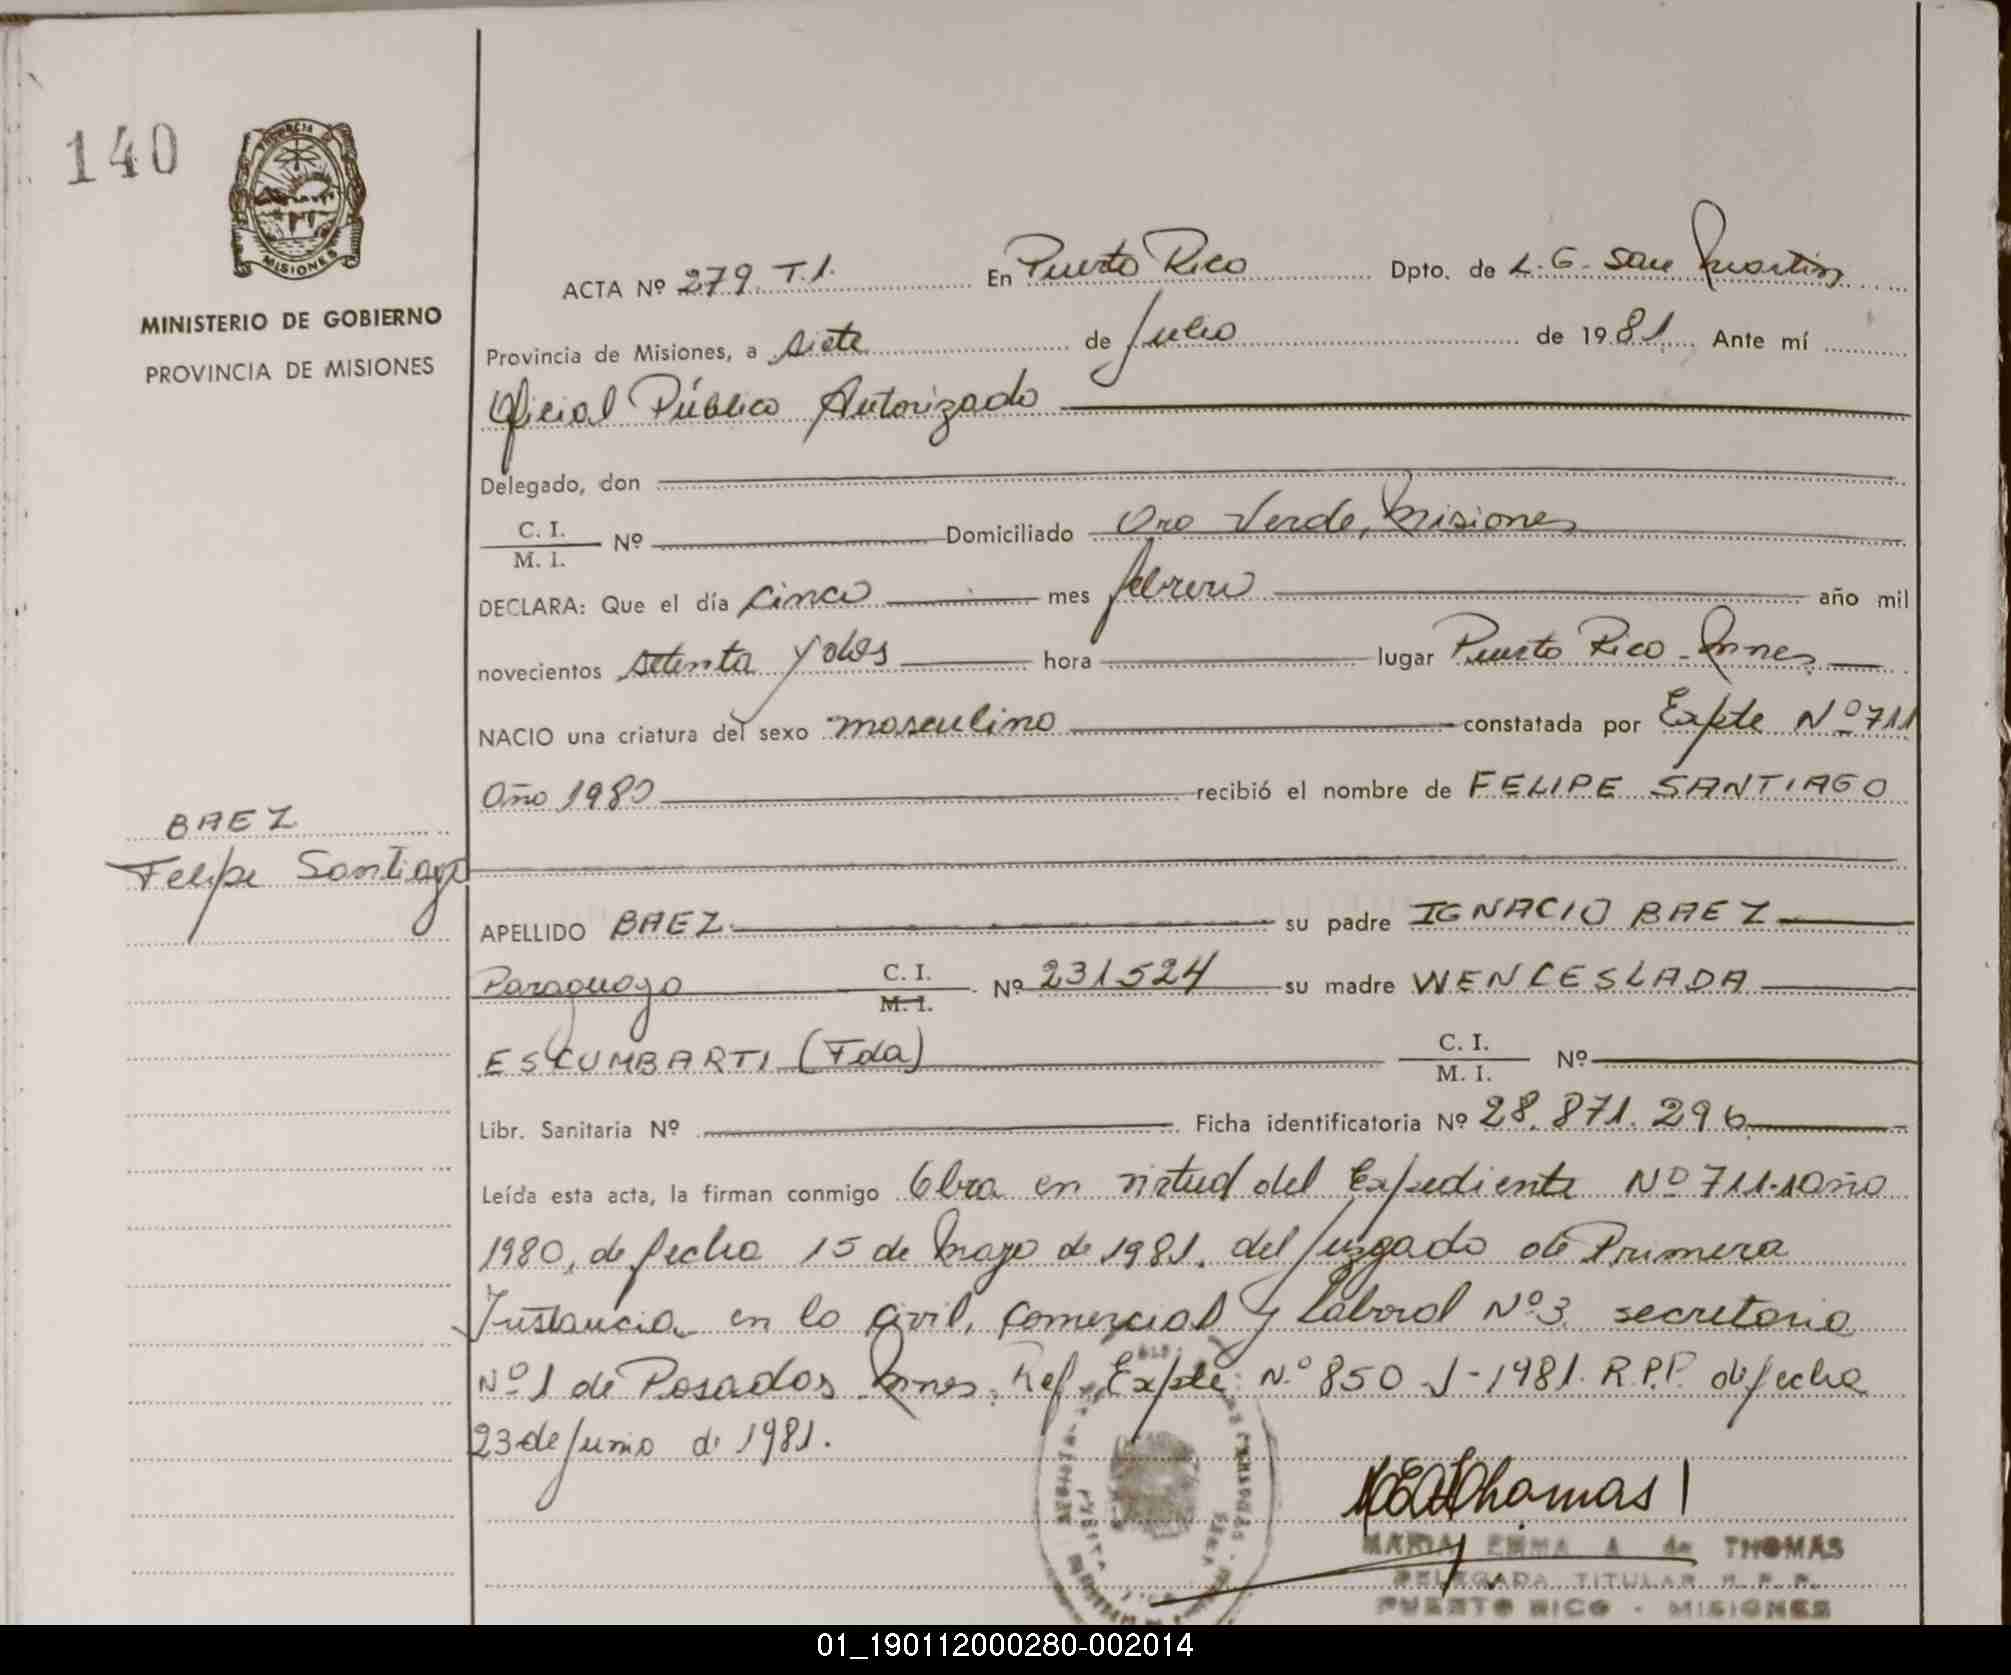 140
PROVINCIA DE
MISIONES
MINISTERIO DE GOBIERNO
PROVINCIA DE MISIONES
BAEZ
Felipe Santiago
ACTA Nº 279. T.1. En Puerto Rico Dpto. de L. G. San Martin
Provincia de Misiones, a siete de Julio de 1981. Ante mí
Oficial Público Autorizado
Delegado, don
C. I.
M. I. Nº Domiciliado Oro Verde, Misiones
DECLARA: Que el día cinco mes febrero año mil
novecientos setenta y dos hora lugar Puerto Rico - Mnes
NACIO una criatura del sexo masculino constatada por Expte Nº 711
Año 1980 recibió el nombre de FELIPE SANTIAGO
APELLIDO BAEZ su padre IGNACIO BAEZ
Paraguayo C. I.
M. I. Nº 231524 su madre WENCESLADA
ESCUMBARTI (Fda) C. I.
M. I. Nº
Libr. Sanitaria Nº Ficha identificatoria Nº 28.871.296
Leída esta acta, la firman conmigo Obra en virtud del Expediente Nº 711 año
1980, de fecha 15 de Mayo de 1981. del Juzgado de Primera
Instancia en lo Civil, Comercial y Laboral Nº 3 secretaria
Nº 1 de Posadas Mnes. Ref. Expte Nº 850 J-1981. R.P.P. de fecha
23 de Junio de 1981.
Thomas
MARIA EMMA A de THOMAS
DELEGADA TITULAR R. P. P.
PUERTO RICO - MISIONES
01_190112000280-002014